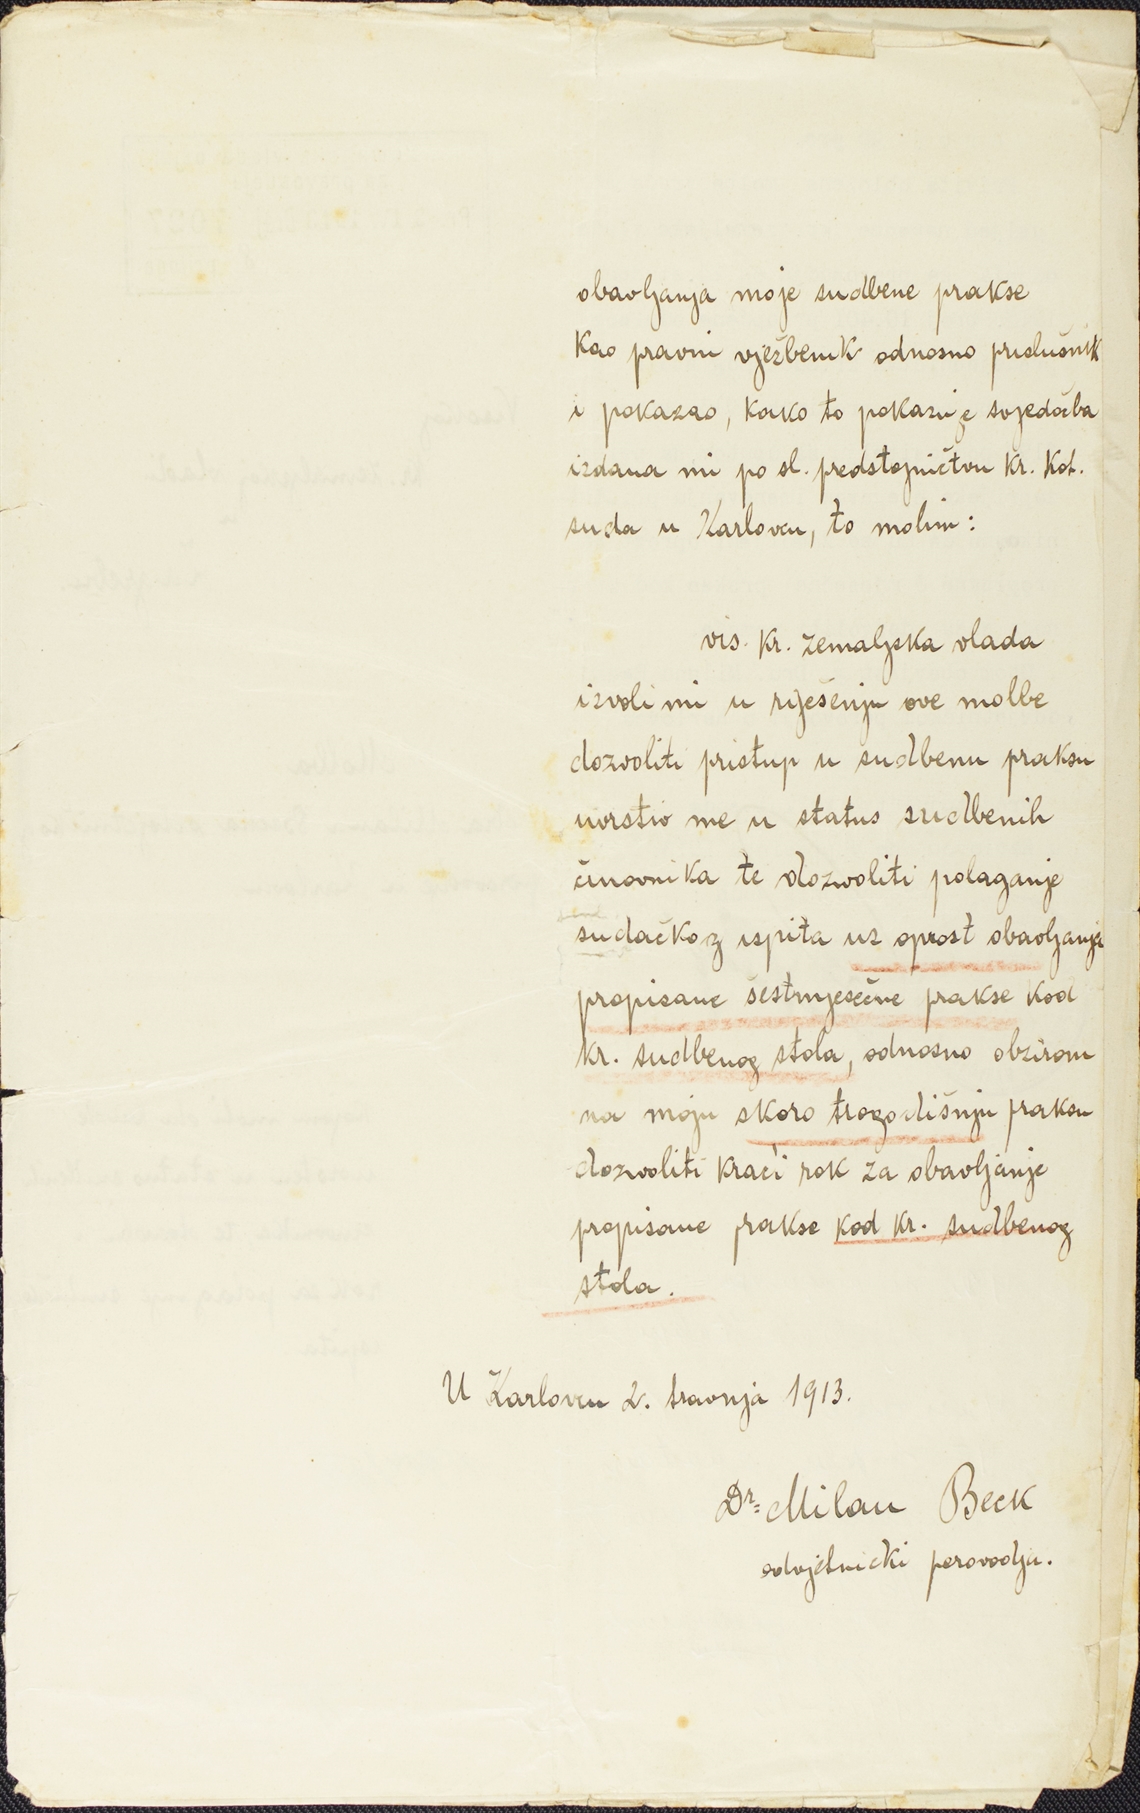 obavljanja moje sudbene prakse
kao pravni vježbenik odnosno prislušnik
i pokazao, kako to pokazuje svjedočba
izdana mi po sl. predstojničtvu kr. kot.
suda u Karlovcu, to molim:
vis. kr. zemaljska vlada
izvoli mi u riješenju ove molbe
dozvoliti pristup u sudbenu praksu
uvrstiv me u status sudbenih
činovnika te dozvoliti polaganje
sudačkog ispita uz oprost obavljanja
propisane šestmjesečne prakse kod
kr. sudbenog stola, odnosno obzirom
na moju skoro trogodišnju praksu
dozvoliti kraći rok za obavljanje
propisane prakse kod kr. sudbenog
stola.
U Karlovcu 2. travnja 1913.
Dr. Milan Beck
odvjetnički perovodja.